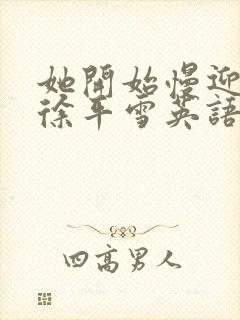 她開始慢迎
徐平雪英語
四高男人